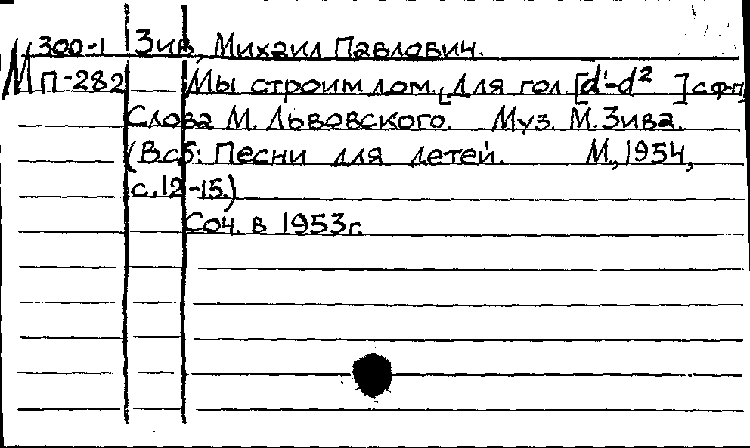 М 300-1 Зив, Михаил Павлович.
П-282 Мы строим дом. [Для гол. [d¹-d² ] с ф-п]
Слова М. Львовского. Муз. М. Зива.
(В сб: Песни для детей. М., 1954,
с. 12-15.)
Соч. в 1953г.